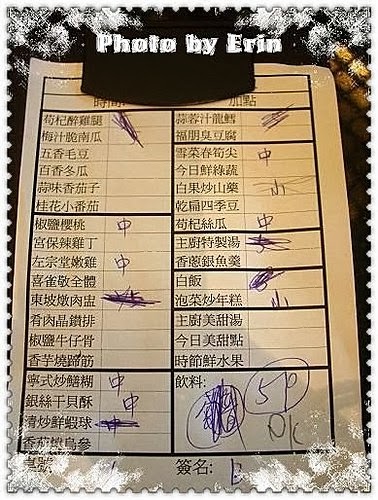 Photo by Erin
加點
枸杞醉雞腿
梅汁脆南瓜
五香毛豆
百香冬瓜
蒜味香茄子
桂花小番茄
椒鹽櫻桃 中
宮保辣雞丁
左宗堂嫩雞 中
喜雀敬全體
東坡燉肉盅
肴肉晶鑽排
椒鹽牛仔骨
香芋燒蹄筋
寧式炒鱔糊 中
銀絲干貝酥 中
清炒鮮蝦球 中
蒜蓉汁龍鱈
福朋臭豆腐
雪菜春筍尖 中
今日鮮綠蔬
白果炒山藥 小
乾扁四季豆
枸杞絲瓜 中
主廚特製湯
香蔥銀魚羹
白飯
泡菜炒年糕 小
主廚美甜湯
今日美甜點
時節鮮水果
飲料: 5P
OK
簽名: